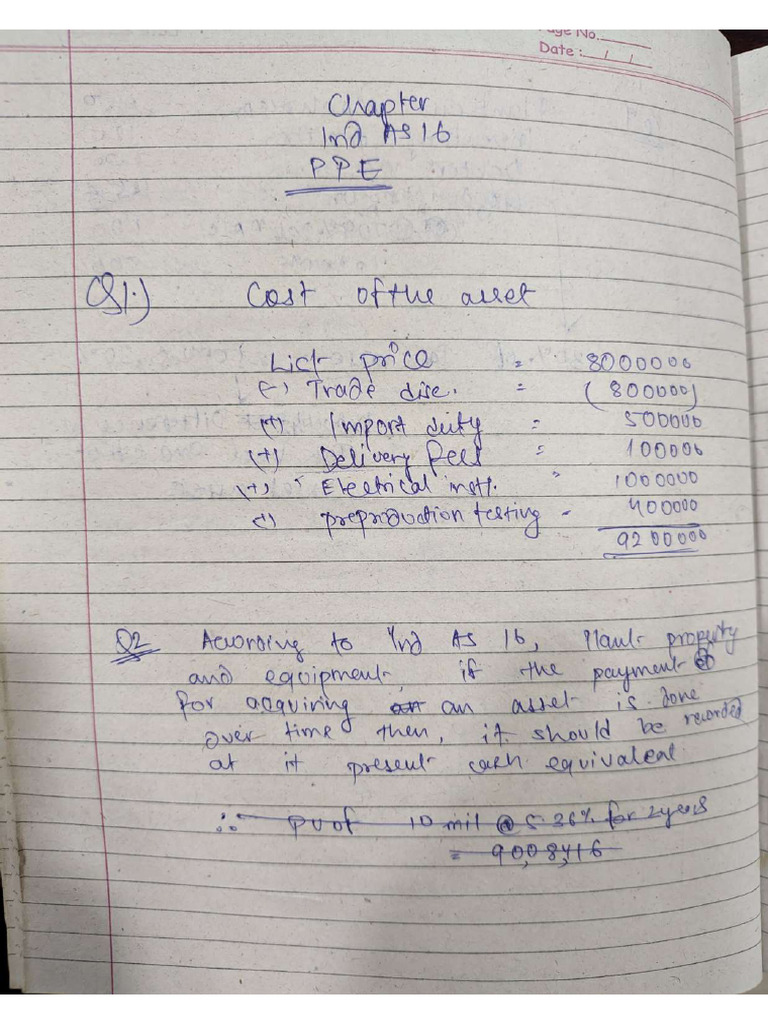 Page No.
Date: / /
Chapter
Ind AS 16
PPE
Q1.) Cost of the asset
List price = 8000000
(-) Trade disc. = (800000)
(+) Import duty = 500000
(+) Delivery fees = 100000
(+) Electrical instl. = 1000000
(+) preproduction testing = 400000
9200000
Q2 According to Ind AS 16, Plant property
and equipment, if the payment
for acquiring an asset is done
over time then, it should be recorded
at it present cash equivalent
∴ PV of 10 mil @ 5.36% for 2 years
= 90,08,416